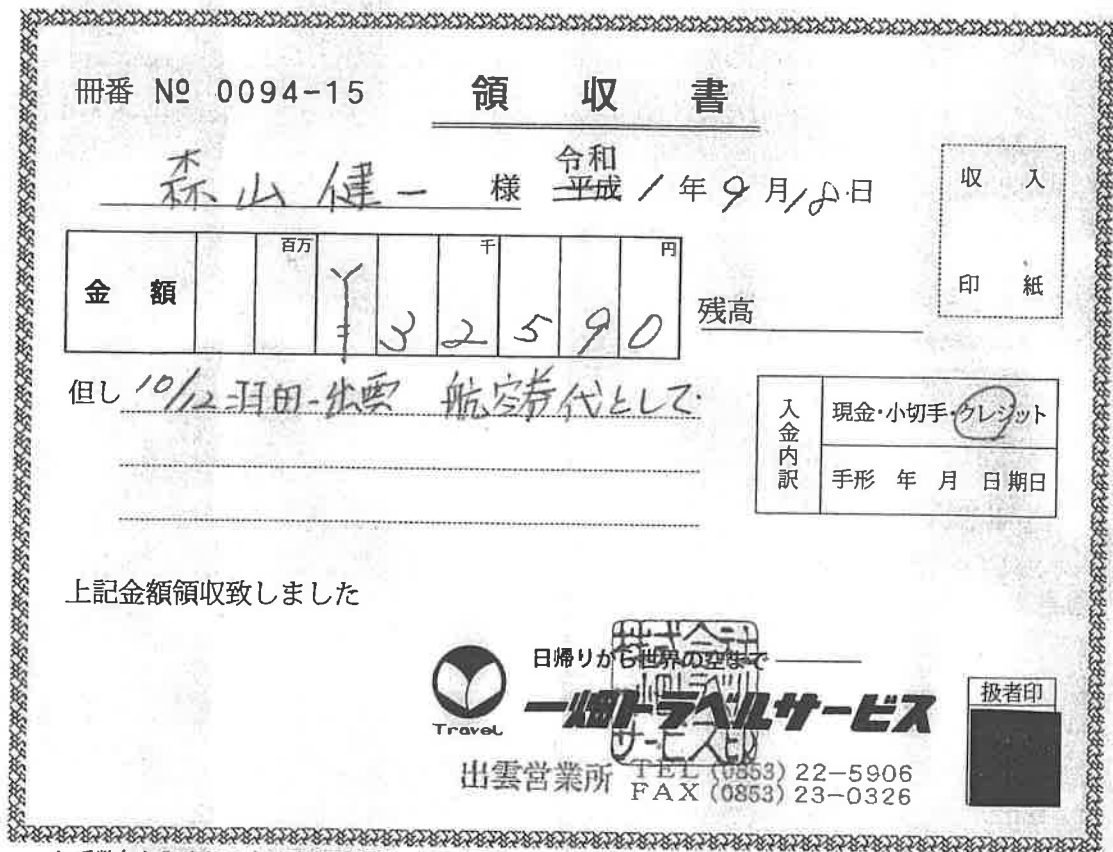 冊番 № 0094-15 領収書
森山健一 様 令和 平成 1年9月18日
収入
印紙
金額 百万 千 円
¥32590
残高
但し 10/12 羽田-出雲 航空券代として
入金内訳 現金・小切手・クレジット
手形 年 月 日期日
上記金額領収致しました
日帰りから世界の空まで
Travel 一畑トラベルサービス
扱者印
出雲営業所 TEL (0853) 22-5906
FAX (0853) 23-0326